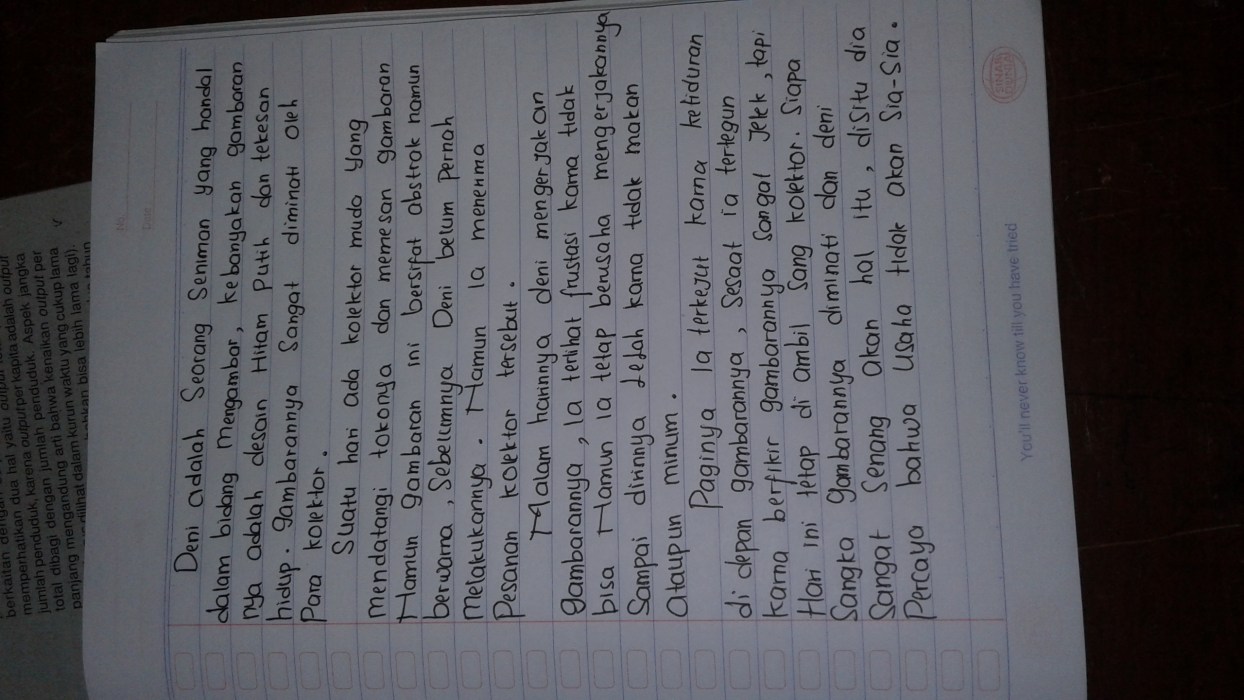 memperhatikan dua hal yaitu output
jumlah penduduk, karena output per kapita adalah output
total dibagi dengan jumlah penduduk. Aspek jangka
panjang mengandung arti bahwa kenaikan output per
dilihat dalam kurun waktu yang cukup lama
bisa lebih lama lagi).
tahun
No.
Date
Deni adalah Seorang Seniman yang handal
dalam bidang Mengambar, kebanyakan gambaran
nya adalah desain Hitam Putih dan tekesan
hidup. gambarannya Sangat diminati Oleh
Para kolektor.
Suatu hari ada kolektor muda Yang
mendatangi tokonya dan memesan gambaran
Namun gambaran ini bersifat abstrak namun
berwarna, Sebelumnya Deni belum Pernah
Melakukannya. Namun Ia menerima
Pesanan kolektor tersebut.
Malam harinnya deni mengerjakan
gambarannya, Ia terlihat frustasi karna tidak
bisa Namun ia tetap berusaha mengerjakannya
Sampai dirinnya Lelah karna tidak makan
Ataupun minum.
Paginya Ia terkejut karna ketiduran
di depan gambarannya, Sesaat ia tertegun
karna berfikir gambarannya Sangat Jelek, tapi
Hari ini tetap di ambil Sang kolektor. Siapa
Sangka gambarannya diminati dan deni
Sangat Senang akan hal itu, disitu dia
Percaya bahwa Usaha tidak akan Sia-Sia.
You'll never know till you have tried
SINAR
DUNIA